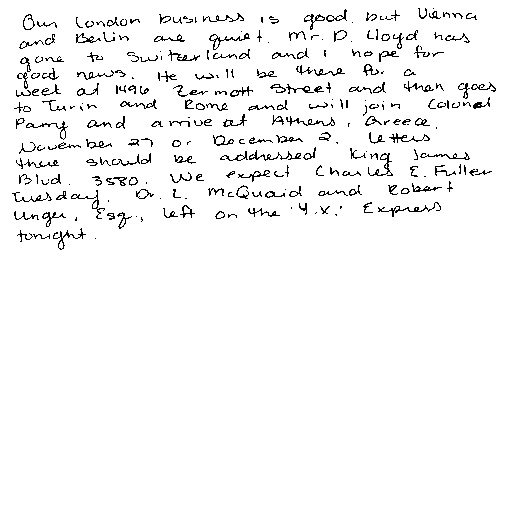 Our London business is good, but Vienna
and Berlin are quiet. Mr. D. Lloyd has
gone to Switzerland and I hope for
good news. He will be there for a
week at 1496 Zermott Street and then goes
to Turin and Rome and will join Colonel
Parry and arrive at Athens, Greece,
November 27 or December 2. Letters
there should be addressed King James
Blvd. 3580. We expect Charles E. Fuller
Tuesday. Dr. L. McQuaid and Robert
Unger, Esq., left on the "Y.X." Express
tonight.